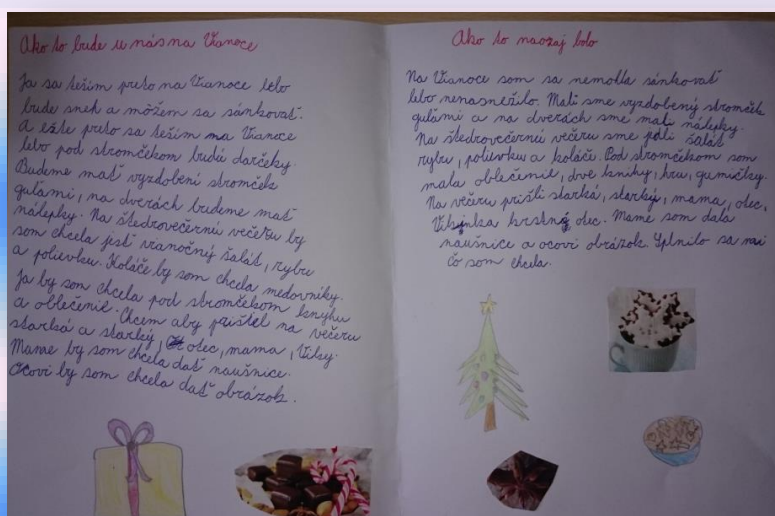 Ako to bude u nás na Vianoce
Ja sa teším preto na Vianoce lebo
bude sneh a môžem sa sánkovať.
A ešte preto sa teším na Vianoce
lebo pod stromčekom budú darčeky.
Budeme mať vyzdobení stromček
guľami, na dverách budeme mať
nálepky. Na štedrovečernú večeru by
som chcela jesť vianočný šalát, rybu
a polievku. Koláče by som chcela medovníky.
Ja by som chcela pod stromčekom knyhu
a oblečenie. Chcem aby prišiel na večeru
starká a starký, otec, mama, Viky.
Mame by som chcela dať naušnice.
Ocovi by som chcela dať obrázok.
Ako to naozaj bolo
Na Vianoce som sa nemohla sánkovať
lebo nenasnežilo. Mali sme vyzdobený stromček
guľami a na dverách sme mali nálepky.
Na štedrovečernú večeru sme jedli šalát
rybu, polievku a koláče. Pod stromčekom som
mala oblečenie, dve knihy, hru, gumičky.
Na večeru prišli starká, starký, mama, otec,
Vikinka krstný otec. Mame som dala
naušnice a ocovi obrázok. Splnilo sa mi
čo som chcela.